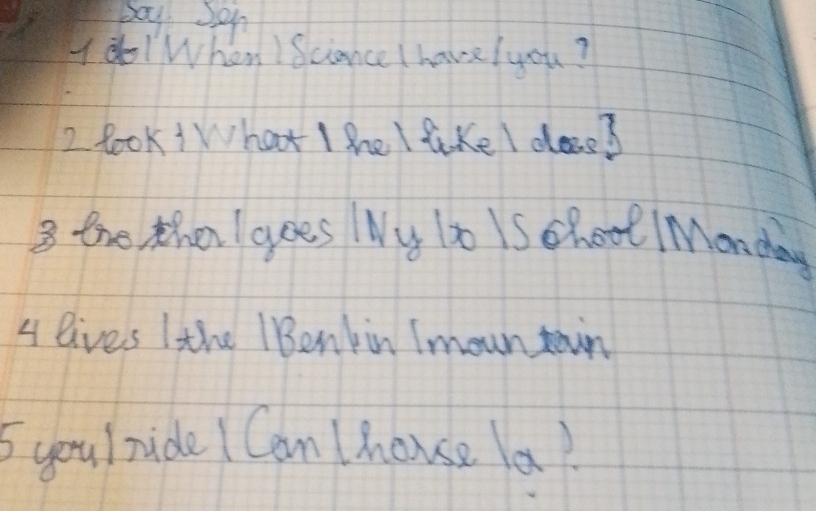 1 do / When / Science / have / you?
2 look / What / he / like / does?
3 brother / goes / My / to / School / Monday
4 lives / the / Ben / in / mountain
5 you / ride / Can / horse / a?